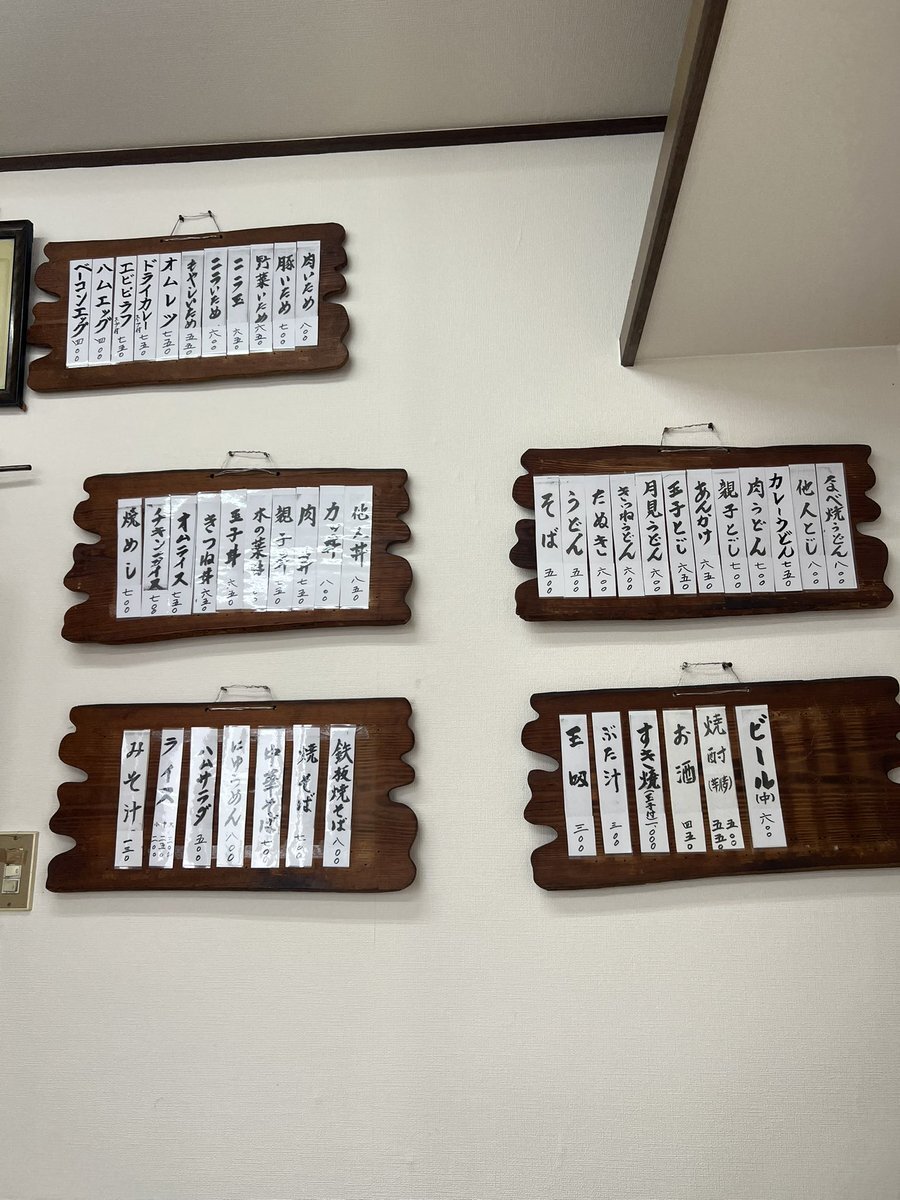 肉いため 八〇〇
豚いため 七〇〇
野菜いため 六五〇
ニラ玉 六五〇
ニラいため 六〇〇
もやしいため 五五〇
オムレツ 七五〇
ドライカレー 七五〇
エビピラフ 七五〇
ハムエッグ 四〇〇
ベーコンエッグ 四〇〇
なべ焼うどん 八〇〇
他人とじ 八〇〇
カレーうどん 七五〇
肉うどん 七〇〇
親子とじ 七〇〇
あんかけ 六五〇
玉子とじ 六五〇
月見うどん 六〇〇
きつねうどん 六〇〇
たぬき 六〇〇
うどん 五〇〇
そば 五〇〇
他人丼 八五〇
カツ丼 八〇〇
肉丼 七五〇
親子丼 七五〇
木の葉丼
玉子丼 六五〇
きつね丼 六五〇
オムライス 七五〇
チキンライス 七〇〇
焼めし 七〇〇
ビール(中) 六〇〇
焼酎 五五〇 五〇〇
お酒 四五〇
すき焼(玉子付) 一、〇〇〇
ぶた汁 三〇〇
玉吸 三〇〇
鉄板焼そば 八〇〇
焼そば 七〇〇
中華そば 七〇〇
にゅうめん 八〇〇
ハムサラダ 五〇〇
ライス
みそ汁 一三〇